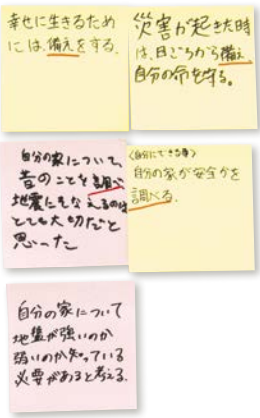 幸せに生きるため
には、備えをする。
災害が起きた時
は、日ごろから備え、
自分の命を守る。
自分の家について、
昔のことを調べ
地震にそなえるのは
とても大切だと
思った
〈自分にできる事〉
自分の家が安全かを
調べる。
自分の家について
地盤が強いのか
弱いのか知っている
必要があると考える。